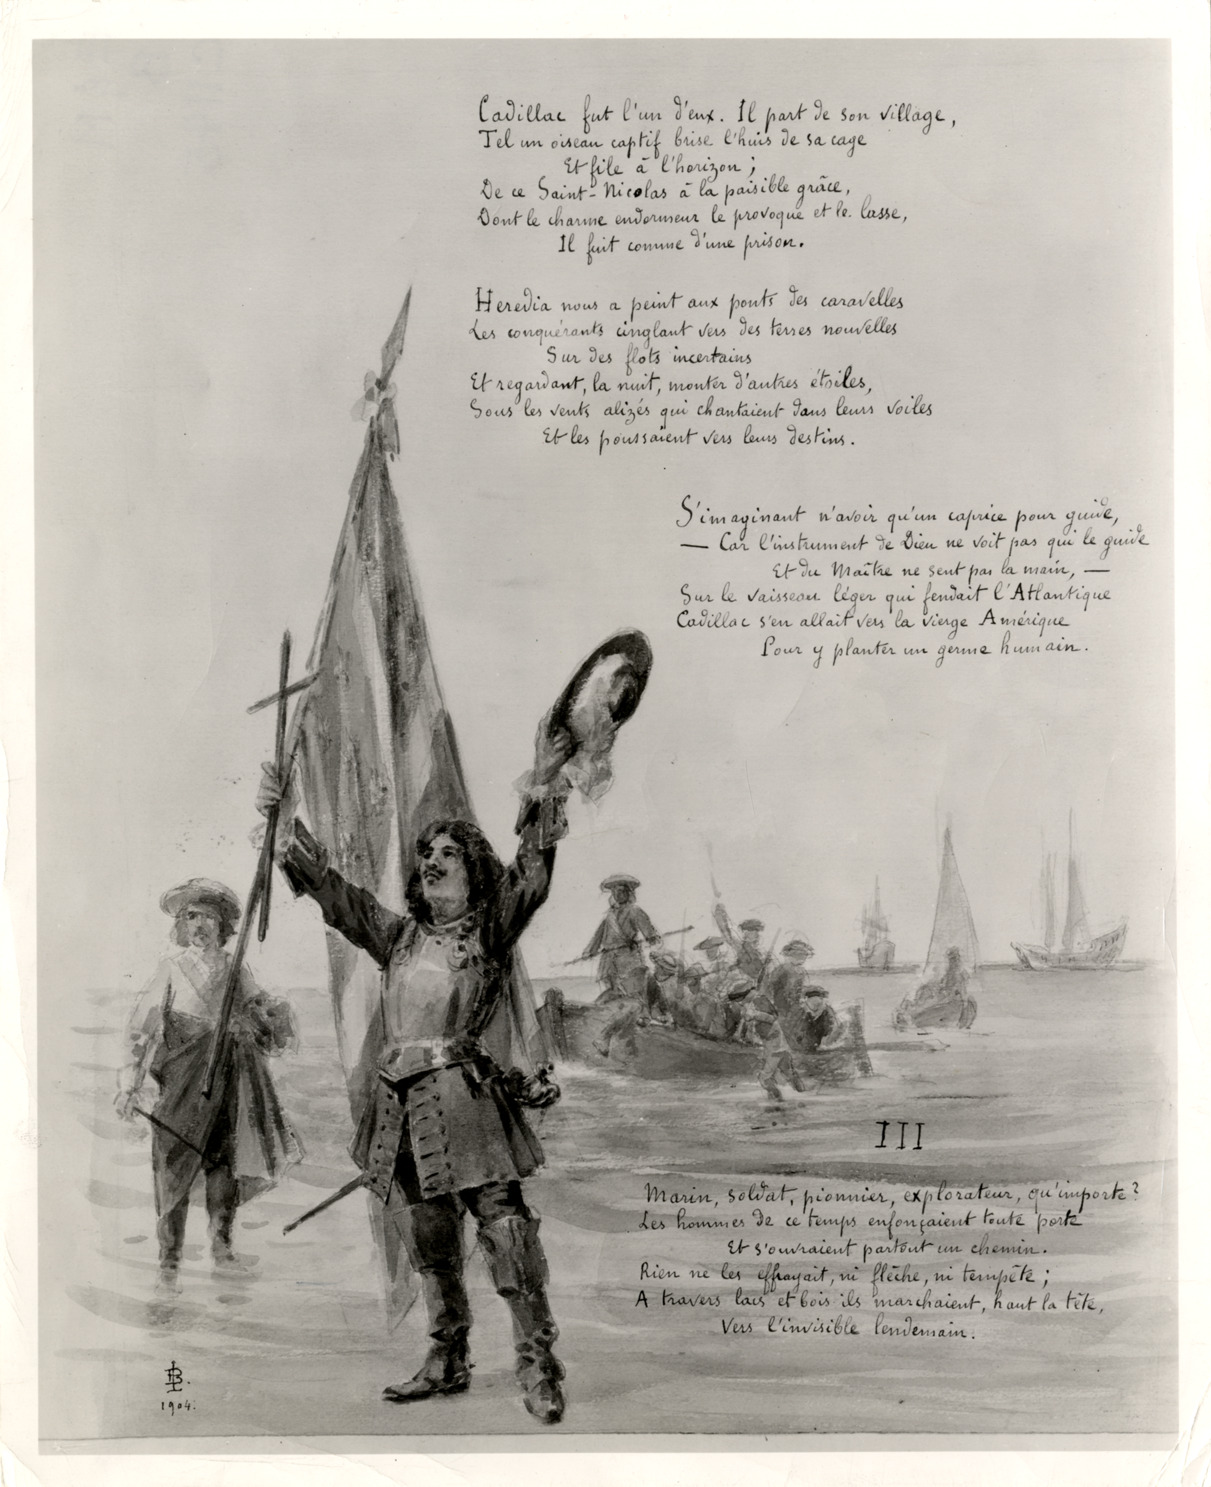 Cadillac fut l'un d'eux. Il part de son village,
Tel un oiseau captif brise l'huis de sa cage
Et file à l'horizon ;
De ce Saint-Nicolas à la paisible grâce,
Dont le charme endormeur le provoque et le lasse,
Il fuit comme d'une prison.
Heredia nous a peint aux ponts des caravelles
Les conquérants cinglant vers des terres nouvelles
Sur des flots incertains
Et regardant, la nuit, monter d'autres étoiles,
Sous les vents alizés qui chantaient dans leurs voiles
Et les poussaient vers leurs destins.
S'imaginant n'avoir qu'un caprice pour guide,
— Car l'instrument de Dieu ne voit pas qui le guide
Et du Maître ne sent pas la main, —
Sur le vaisseau léger qui fendait l'Atlantique
Cadillac s'en allait vers la vierge Amérique
Pour y planter un germe humain.
III
Marin, soldat, pionnier, explorateur, qu'importe ?
Les hommes de ce temps enfonçaient toute porte
Et s'ouvraient partout un chemin.
Rien ne les effrayait, ni flèche, ni tempête ;
A travers lacs et bois ils marchaient, haut la tête,
Vers l'invisible lendemain.
1904.